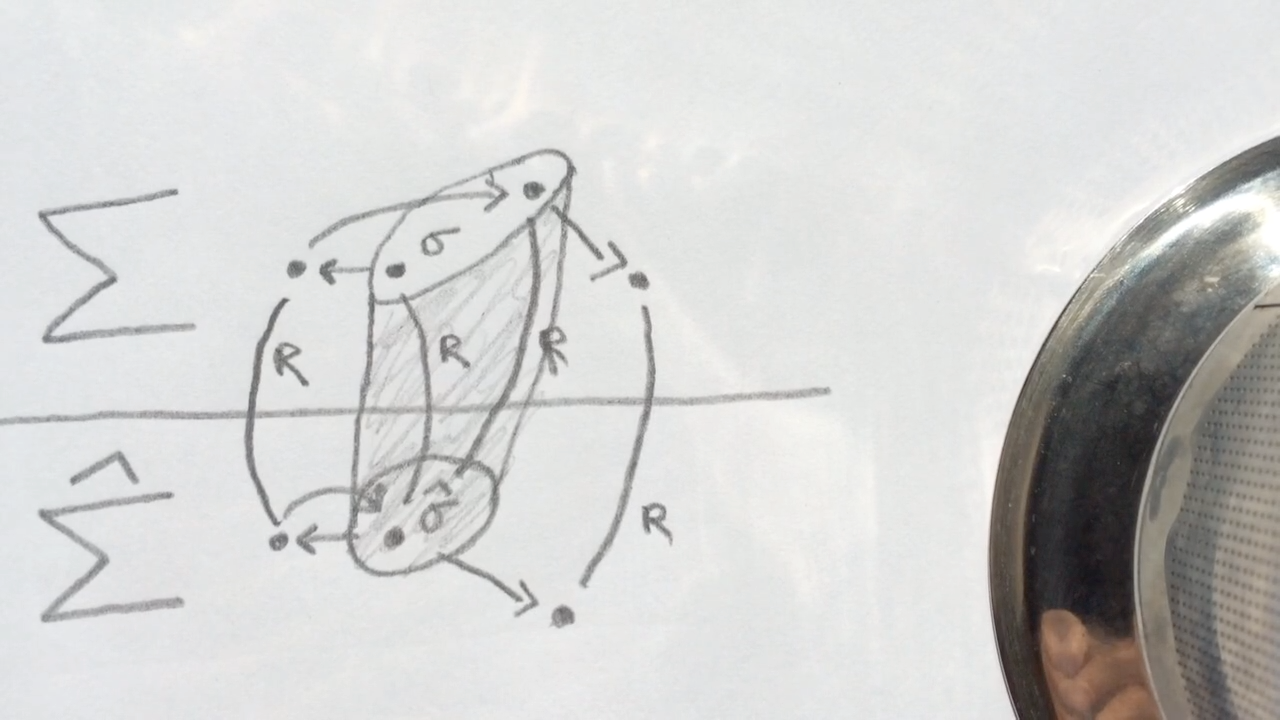 Σ σ
R R R
Σ̂ σ̂ R